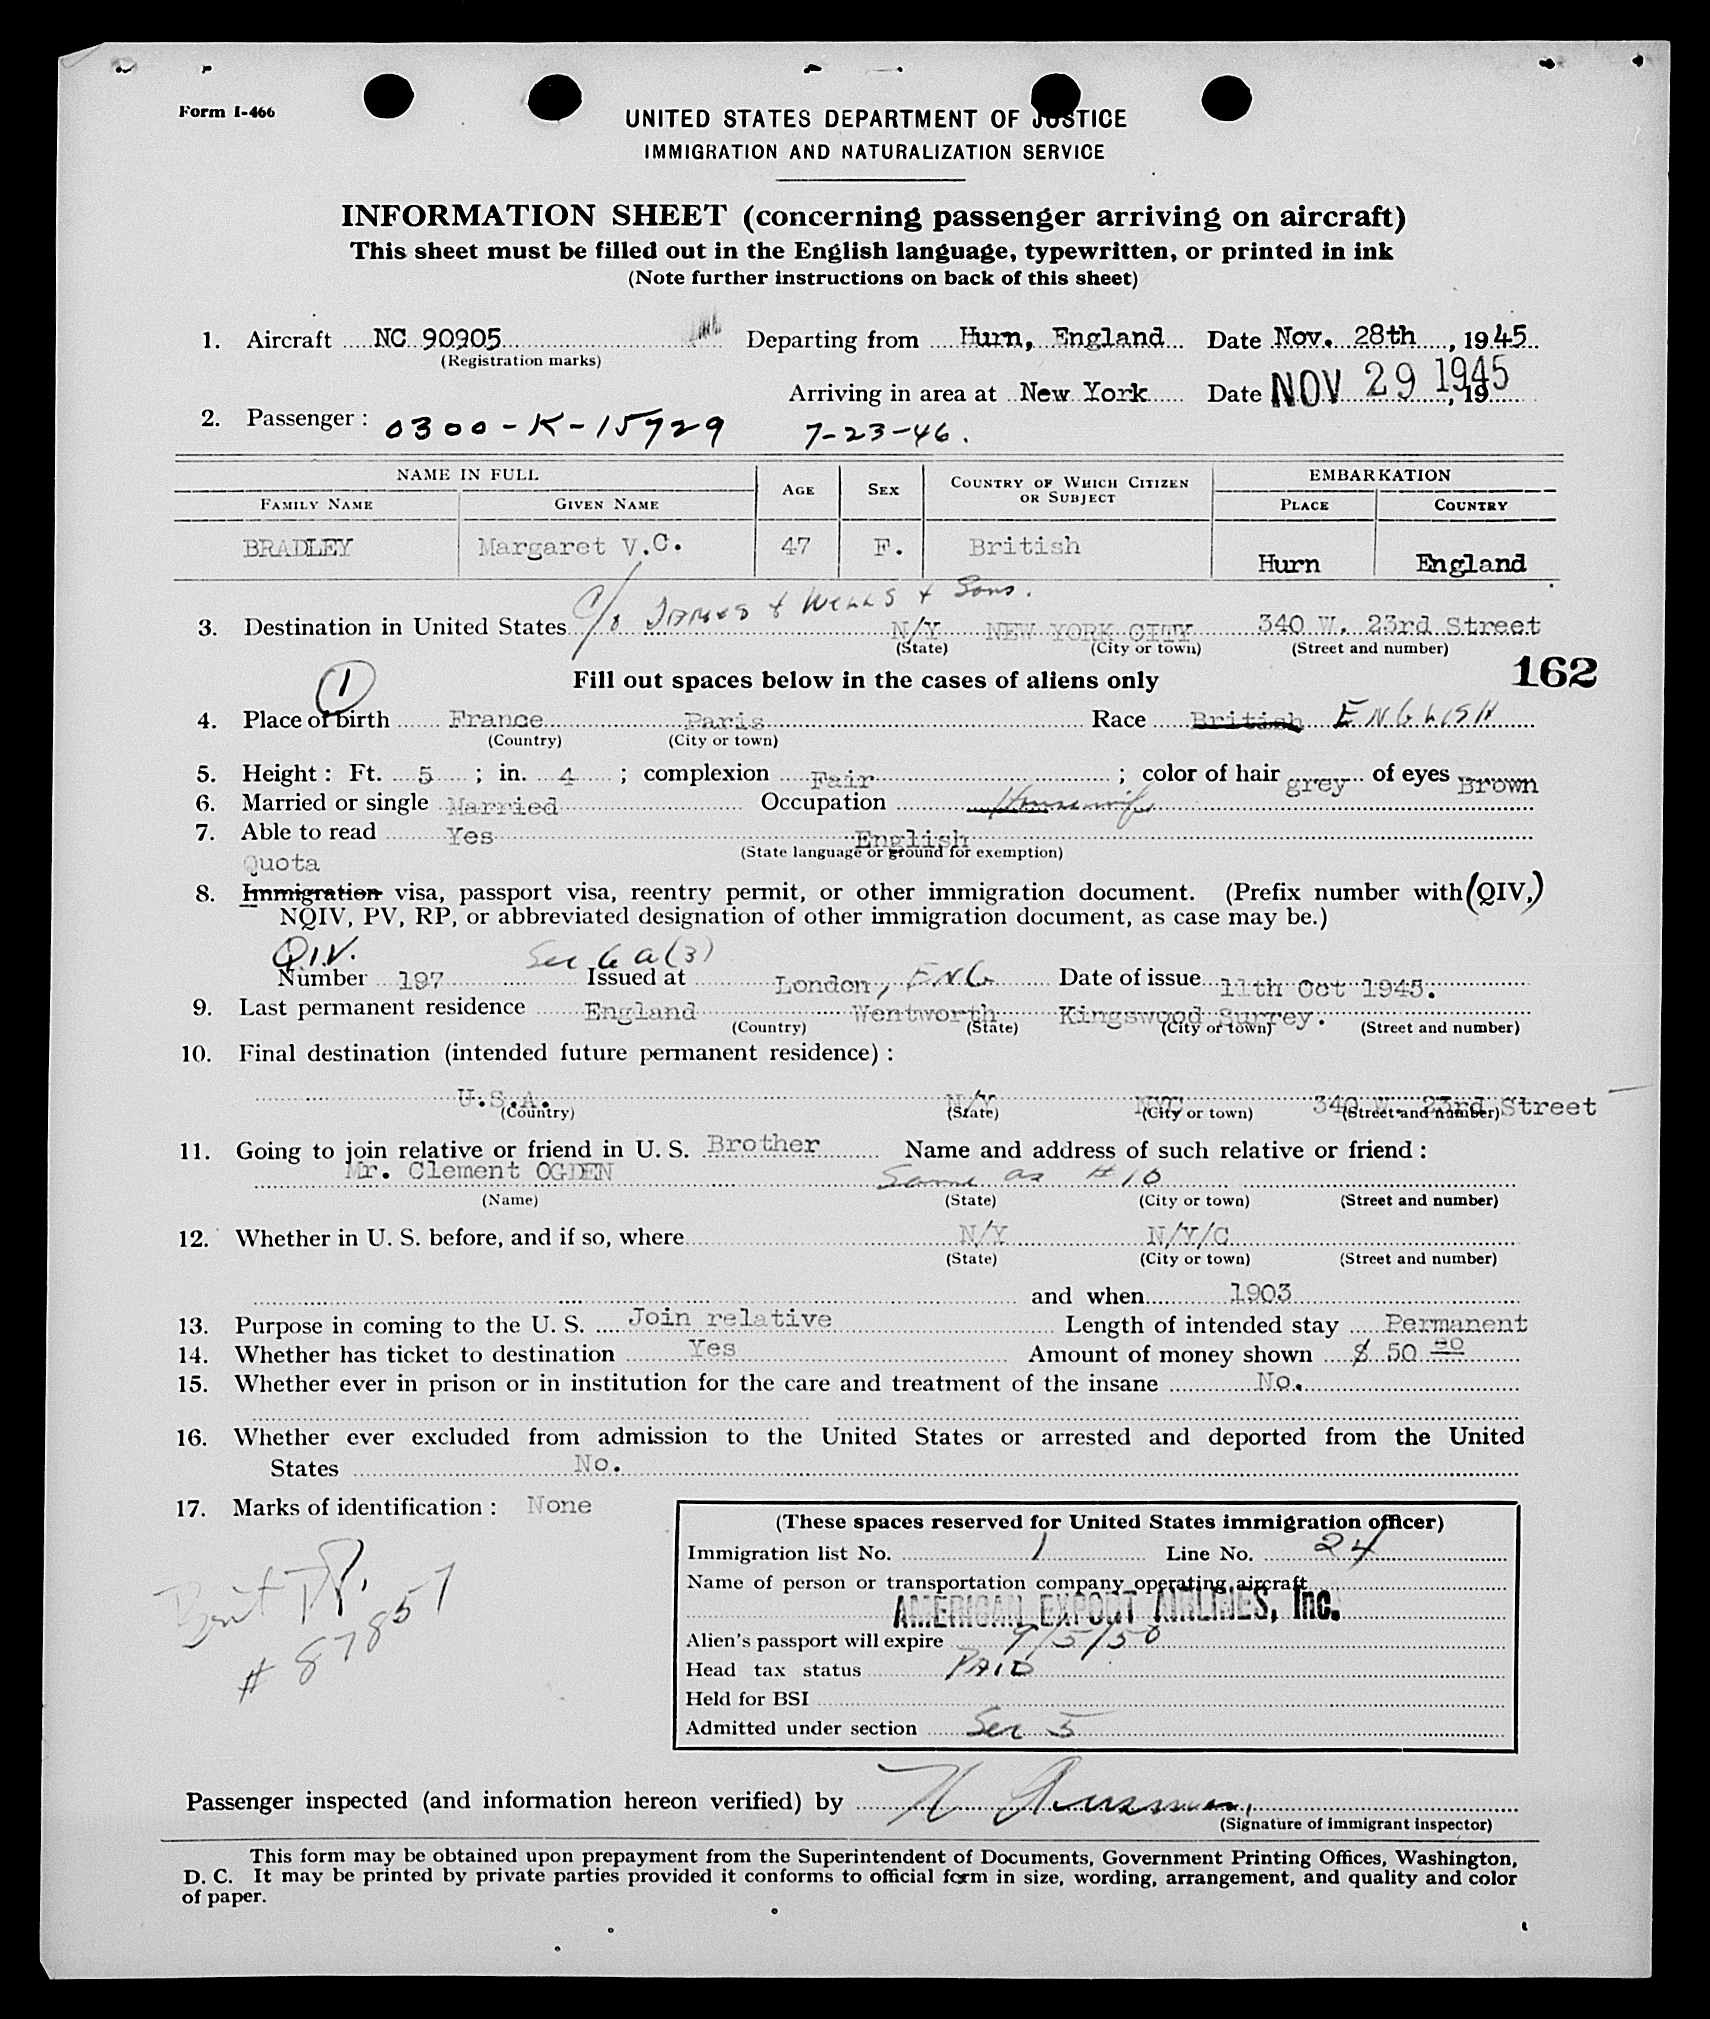 Form I-466
UNITED STATES DEPARTMENT OF JUSTICE
IMMIGRATION AND NATURALIZATION SERVICE
INFORMATION SHEET (concerning passenger arriving on aircraft)
This sheet must be filled out in the English language, typewritten, or printed in ink
(Note further instructions on back of this sheet)
1. Aircraft NC 90905 Departing from Hurn, England Date Nov. 28th, 1945
(Registration marks)
Arriving in area at New York Date NOV 29 1945, 19
2. Passenger: 0300-K-15729 7-23-46.
NAME IN FULL AGE SEX COUNTRY OF WHICH CITIZEN OR SUBJECT EMBARKATION
FAMILY NAME GIVEN NAME PLACE COUNTRY
BRADLEY Margaret V.C. 47 F. British Hurn England
C/o JAMES & WELLS & Sons.
3. Destination in United States N/Y NEW YORK CITY 340 W. 23rd Street
(State) (City or town) (Street and number)
162
1 Fill out spaces below in the cases of aliens only
4. Place of birth France Paris Race British ENGLISH
(Country) (City or town)
5. Height: Ft. 5; in. 4; complexion Fair; color of hair grey of eyes Brown
6. Married or single Married Occupation Housewife
7. Able to read Yes English
(State language or ground for exemption)
Quota
8. Immigration visa, passport visa, reentry permit, or other immigration document. (Prefix number with (QIV,)
NQIV, PV, RP, or abbreviated designation of other immigration document, as case may be.)
Q.I.V. Sec 6 a(3)
Number 197 Issued at London, ENG Date of issue 11th Oct 1945.
9. Last permanent residence England Wentworth Kingswood Surrey.
(Country) (State) (City or town) (Street and number)
10. Final destination (intended future permanent residence):
U.S.A. N/Y NYC 340 W. 23rd Street
(Country) (State) (City or town) (Street and number)
11. Going to join relative or friend in U. S. Brother Name and address of such relative or friend:
Mr. Clement OGDEN Same as #10
(Name) (State) (City or town) (Street and number)
12. Whether in U. S. before, and if so, where N/Y N/Y/C
(State) (City or town) (Street and number)
and when 1903
13. Purpose in coming to the U. S. Join relative Length of intended stay Permanent
14. Whether has ticket to destination Yes Amount of money shown $ 50 00
15. Whether ever in prison or in institution for the care and treatment of the insane No.
16. Whether ever excluded from admission to the United States or arrested and deported from the United
States No.
17. Marks of identification: None
Brit PP. # 87857
(These spaces reserved for United States immigration officer)
Immigration list No. 1 Line No. 24
Name of person or transportation company operating aircraft
AMERICAN EXPORT AIRLINES, Inc.
Alien's passport will expire 9/5/50
Head tax status PAID
Held for BSI
Admitted under section Sec 5
Passenger inspected (and information hereon verified) by
(Signature of immigrant inspector)
This form may be obtained upon prepayment from the Superintendent of Documents, Government Printing Offices, Washington,
D. C. It may be printed by private parties provided it conforms to official form in size, wording, arrangement, and quality and color
of paper.